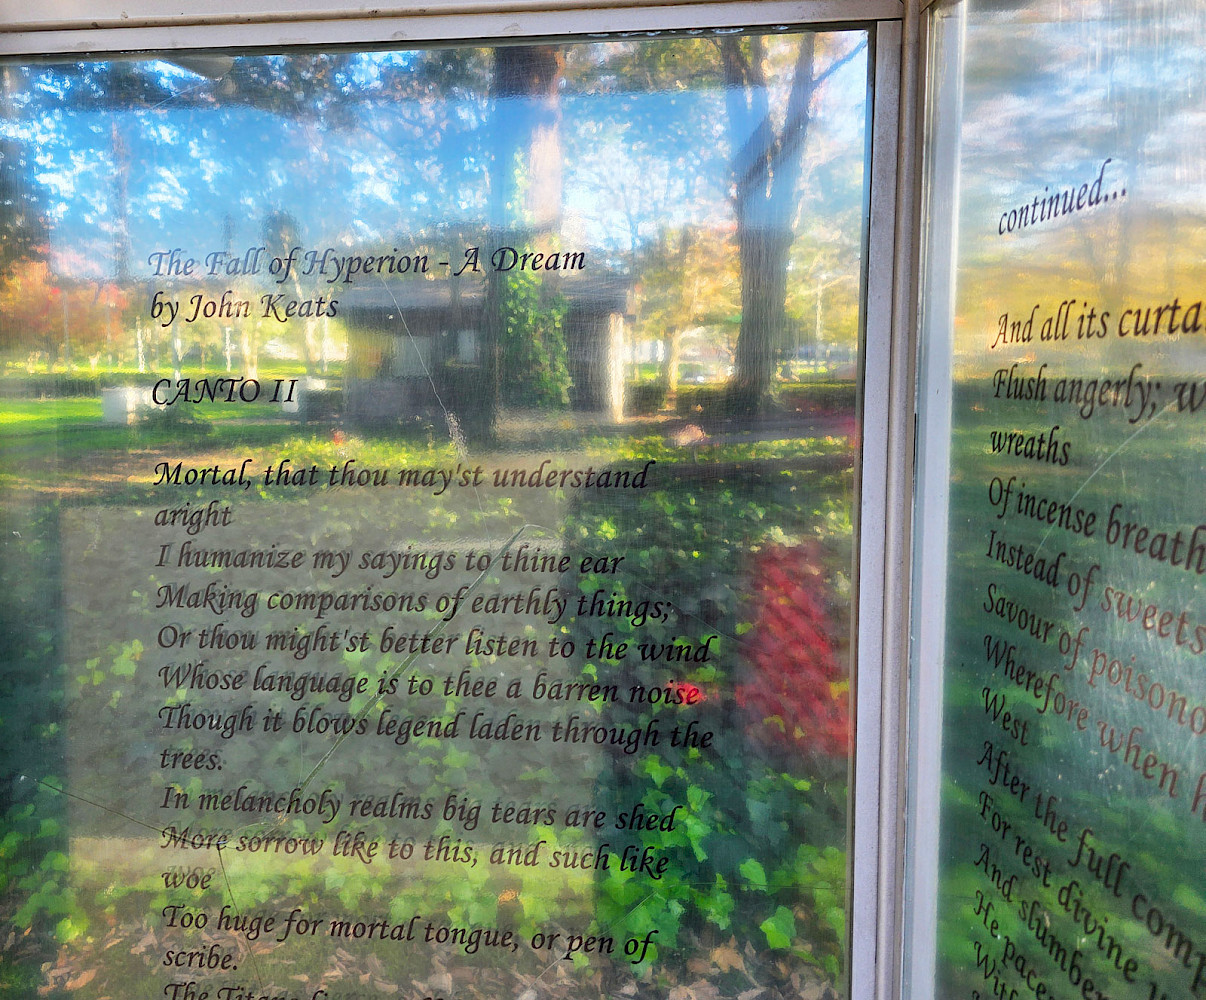 The Fall of Hyperion - A Dream
by John Keats
CANTO II
Mortal, that thou may'st understand
aright
I humanize my sayings to thine ear
Making comparisons of earthly things;
Or thou might'st better listen to the wind
Whose language is to thee a barren noise
Though it blows legend laden through the
trees.
In melancholy realms big tears are shed
More sorrow like to this, and such like
woe
Too huge for mortal tongue, or pen of
scribe.
The Titans
continued...
And all its
Flush angerly;
wreaths
Of incense
Instead of sweets
Savour of
Wherefore when
West
After the full
For rest divine
And
He